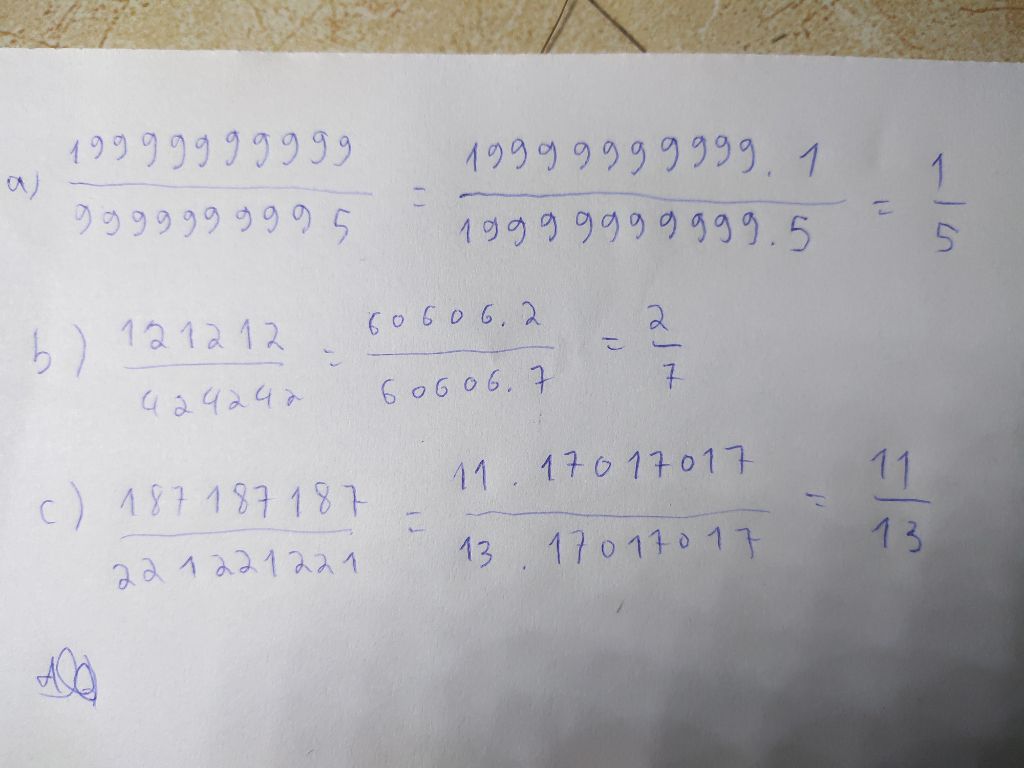 a) 19999999999 / 9999999995 = 19999999999 . 1 / 19999999999 . 5 = 1 / 5
b) 121212 / 424242 = 60606 . 2 / 60606 . 7 = 2 / 7
c) 187187187 / 221221221 = 11 . 17017017 / 13 . 17017017 = 11 / 13